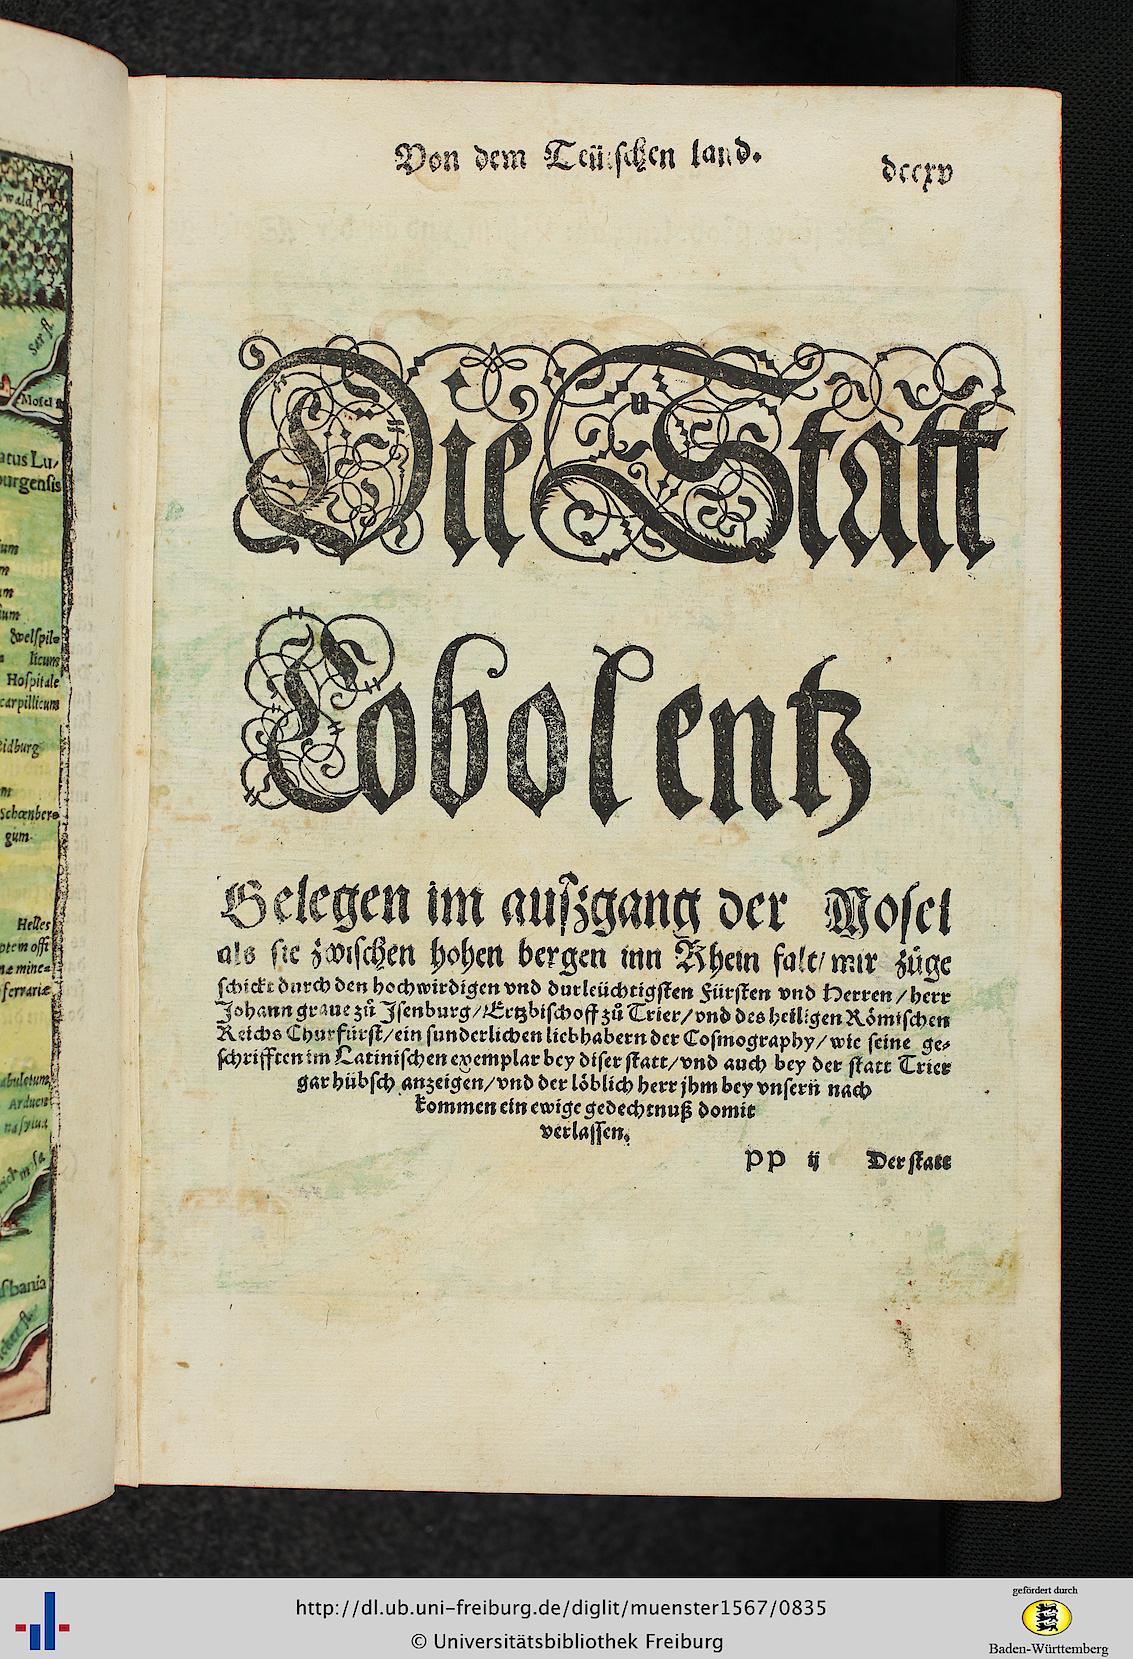 Von dem Teütschen land.
dccxv
Die Statt
Cobolentz
Gelegen im auſzgang der Moſel
als ſie zwiſchen hohen bergen inn Rhein falt/ mir zůge
ſchickt durch den hochwirdigen vnd durleüchtigſten Fürſten vnd Herren / herr
Johann graue zů Jſenburg / Ertzbiſchoff zů Trier / vnd des heiligen Römiſchen
Reichs Churfürſt / ein ſunderlichen liebhabern der Coſmography / wie ſeine ge⸗
ſchrifften im Latiniſchen exemplar bey diſer ſtatt / vnd auch bey der ſtatt Trier
gar hübſch anzeigen / vnd der löblich herr jhm bey vnſern nach
kommen ein ewige gedechtnuß domit
verlaſſen.
pp ij Der ſtatt
wald
Sar fl.
Moſel
atus Lu⸗
burgenſis
um
m
um
ſum
licum
Hoſpitale
carpillicum
idburg
Schœnber⸗
gum.
Helles
ferrariæ
abuletum
Arduen
ſbania
http://dl.ub.uni-freiburg.de/diglit/muenster1567/0835
© Universitätsbibliothek Freiburg
gefördert durch
Baden-Württemberg